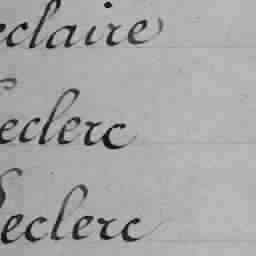 eclaire
Leclerc
Leclerc